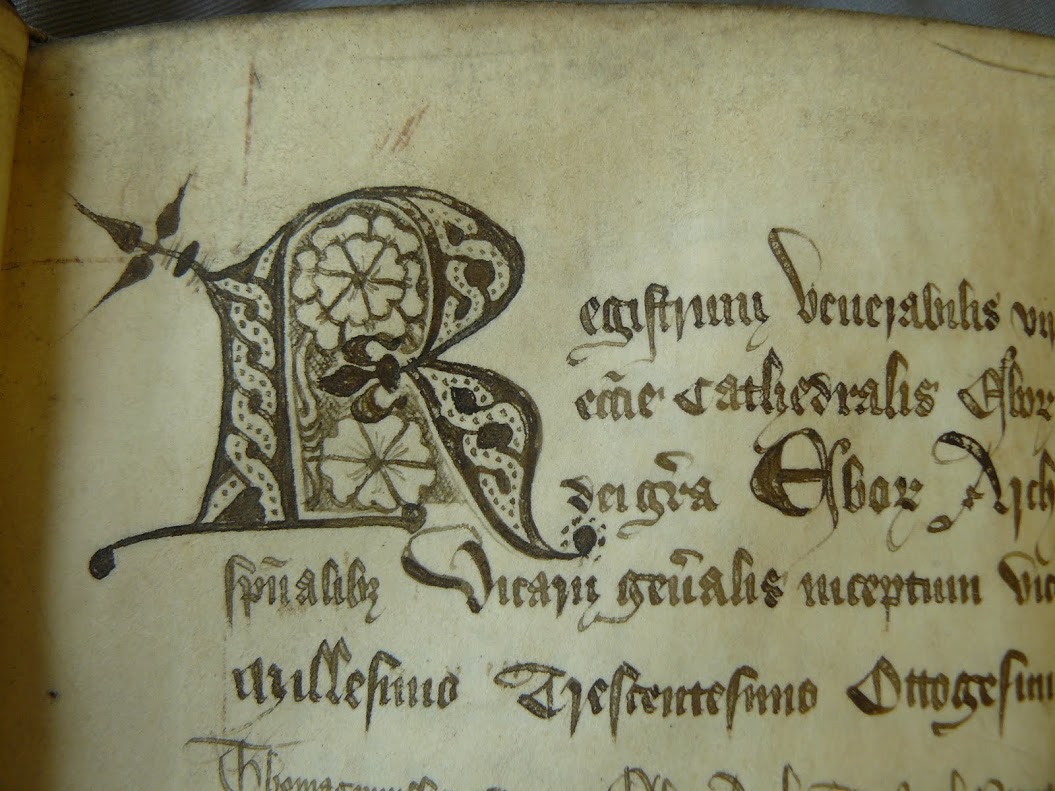 Registrum venerabilis vir
eccl̄ie Cathedralis Ebor
dei gr̄a Ebor Arch
sp̄ualibȝ Vicarij gen̄alis inceptum vic
Millesimo Trescentesimo Octogesim